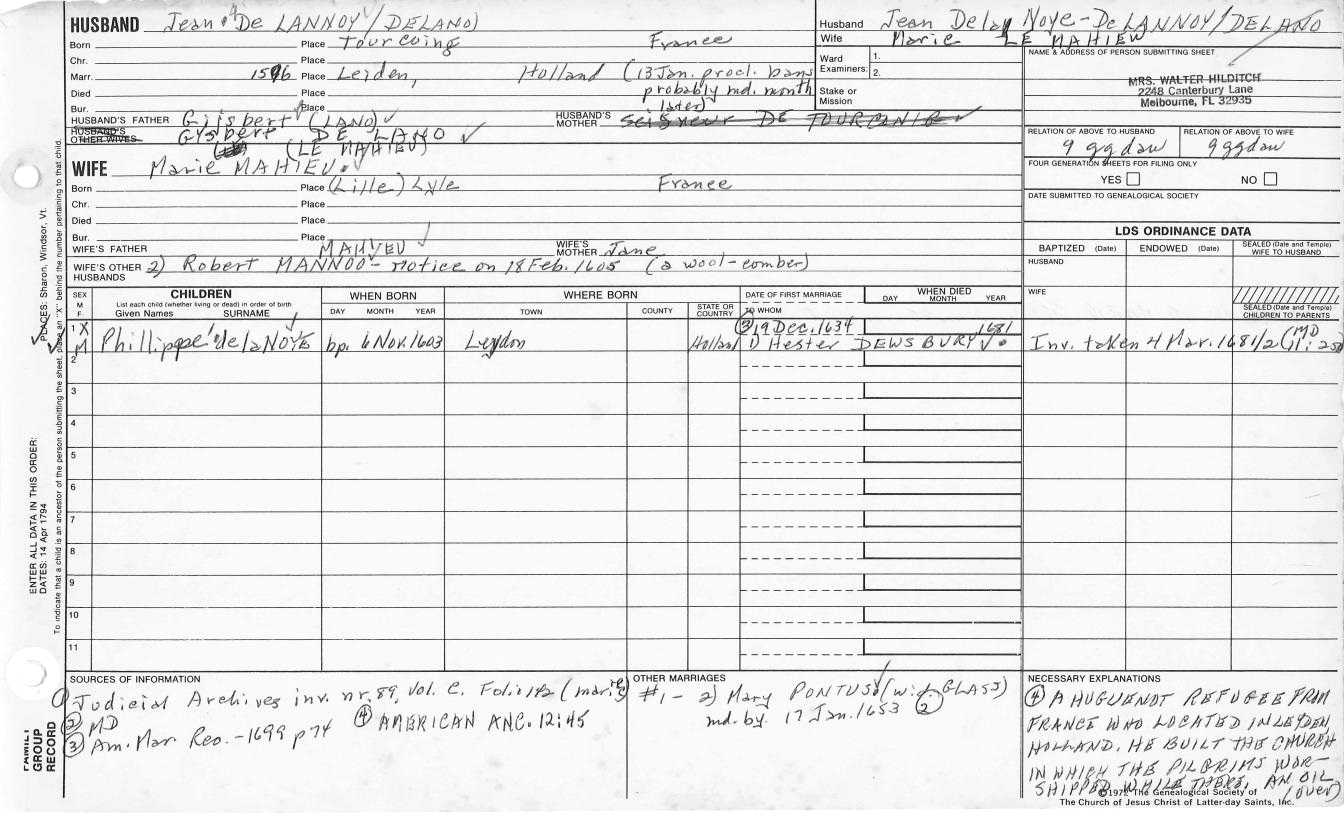 HUSBAND Jean De LANNOY/DELANO)
Born Place Tourcoing France
Chr. Place
Marr. 1596 Place Leiden, Holland (13 Jan. procl. bans
Died Place probably md. month
Bur. Place later)
HUSBAND'S FATHER Gijsbert (LANO)
HUSBAND'S MOTHER Seigneur DE
HUSBAND'S OTHER WIVES Gysbert DE LANO
(LE MAHIEU)
WIFE Marie MAHIEU
Born Place (Lille) Lyle France
Chr. Place
Died Place
Bur. Place
WIFE'S FATHER MAHVEU
WIFE'S MOTHER Jane
WIFE'S OTHER HUSBANDS 2) Robert MANNOO - notice on 18 Feb. 1605 (a wool-comber)
Husband Jean Delay Noye-De LANNOY/DELANO
Wife Marie LE MAHIEU
Ward 1.
Examiners: 2.
Stake or
Mission
NAME & ADDRESS OF PERSON SUBMITTING SHEET
MRS. WALTER HILDITCH
2248 Canterbury Lane
Melbourne, FL 32935
RELATION OF ABOVE TO HUSBAND RELATION OF ABOVE TO WIFE
9 ggdau 9ggdau
FOUR GENERATION SHEETS FOR FILING ONLY
YES NO
DATE SUBMITTED TO GENEALOGICAL SOCIETY
LDS ORDINANCE DATA
BAPTIZED (Date) ENDOWED (Date) SEALED (Date and Temple) WIFE TO HUSBAND
HUSBAND
WIFE
SEALED (Date and Temple) CHILDREN TO PARENTS
SEX M F
CHILDREN
List each child (whether living or dead) in order of birth
Given Names SURNAME
WHEN BORN
DAY MONTH YEAR
WHERE BORN
TOWN COUNTY STATE OR COUNTRY
DATE OF FIRST MARRIAGE
TO WHOM
WHEN DIED
DAY MONTH YEAR
1 X (3) 19 Dec. 1634 1681
M Phillippe delaNOYE bp. 6 Nov. 1603 Leydon Holland 1) Hester DEWSBURY Inv. taken 4 Mar. 1681/2 (MD
2
3
4
5
6
7
8
9
10
11
SOURCES OF INFORMATION
1 Judicial Archives inv. nr. 89, Vol. C. Folio
2 MD
3 Am. Mar. Rec. -1699 p74
4 AMERICAN ANC. 12:45
OTHER MARRIAGES
#1 - 2) Mary PONTUS (wid. GLASS)
md. by 17 Jan. 1653 2
NECESSARY EXPLANATIONS
4 A HUGUENOT REFUGEE FROM
FRANCE WHO LOCATED IN LEYDEN,
HOLLAND. HE BUILT THE CHURCH
IN WHICH THE PILGRIMS WOR-
SHIPPED WHILE THERE. AN OIL
(over)
©1972 The Genealogical Society of
The Church of Jesus Christ of Latter-day Saints, Inc.
PLACES: Sharon, Windsor, Vt.
ENTER ALL DATA IN THIS ORDER:
DATES: 14 Apr 1794
To indicate that a child is an ancestor of the person submitting the sheet, place an "X" behind the number pertaining to that child.
FAMILY
GROUP
RECORD